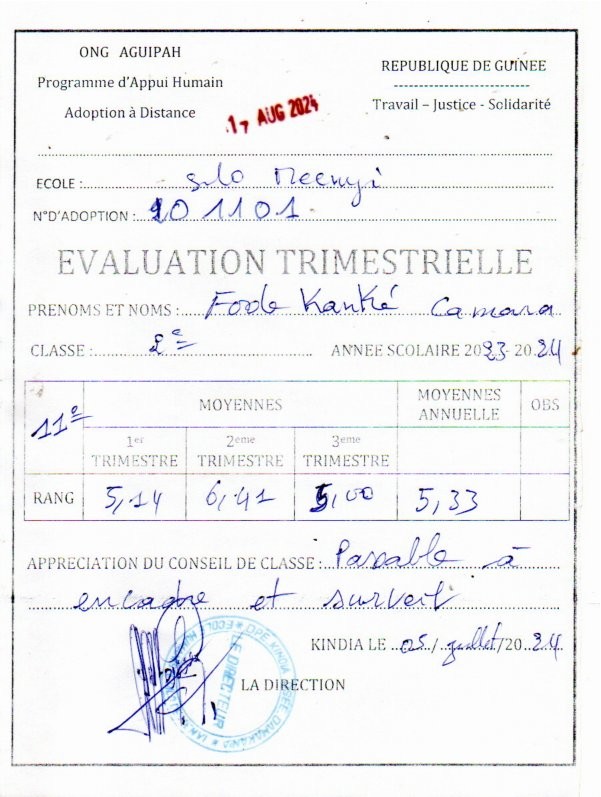 ONG AGUIPAH
Programme d'Appui Humain
Adoption à Distance
REPUBLIQUE DE GUINEE
Travail – Justice - Solidarité
17 AUG 2024
ECOLE :
N°D'ADOPTION : 101101
EVALUATION TRIMESTRIELLE
PRENOMS ET NOMS : Fode Kanké Camara
CLASSE : 2e ANNEE SCOLAIRE 2023-2024
11e MOYENNES MOYENNES ANNUELLE OBS
1er TRIMESTRE 2eme TRIMESTRE 3eme TRIMESTRE
RANG 5,14 6,41 5,00 5,33
APPRECIATION DU CONSEIL DE CLASSE : Passable à
encadre et surveil
KINDIA LE 05/juillet/2024
LA DIRECTION
LE DIRECTEUR